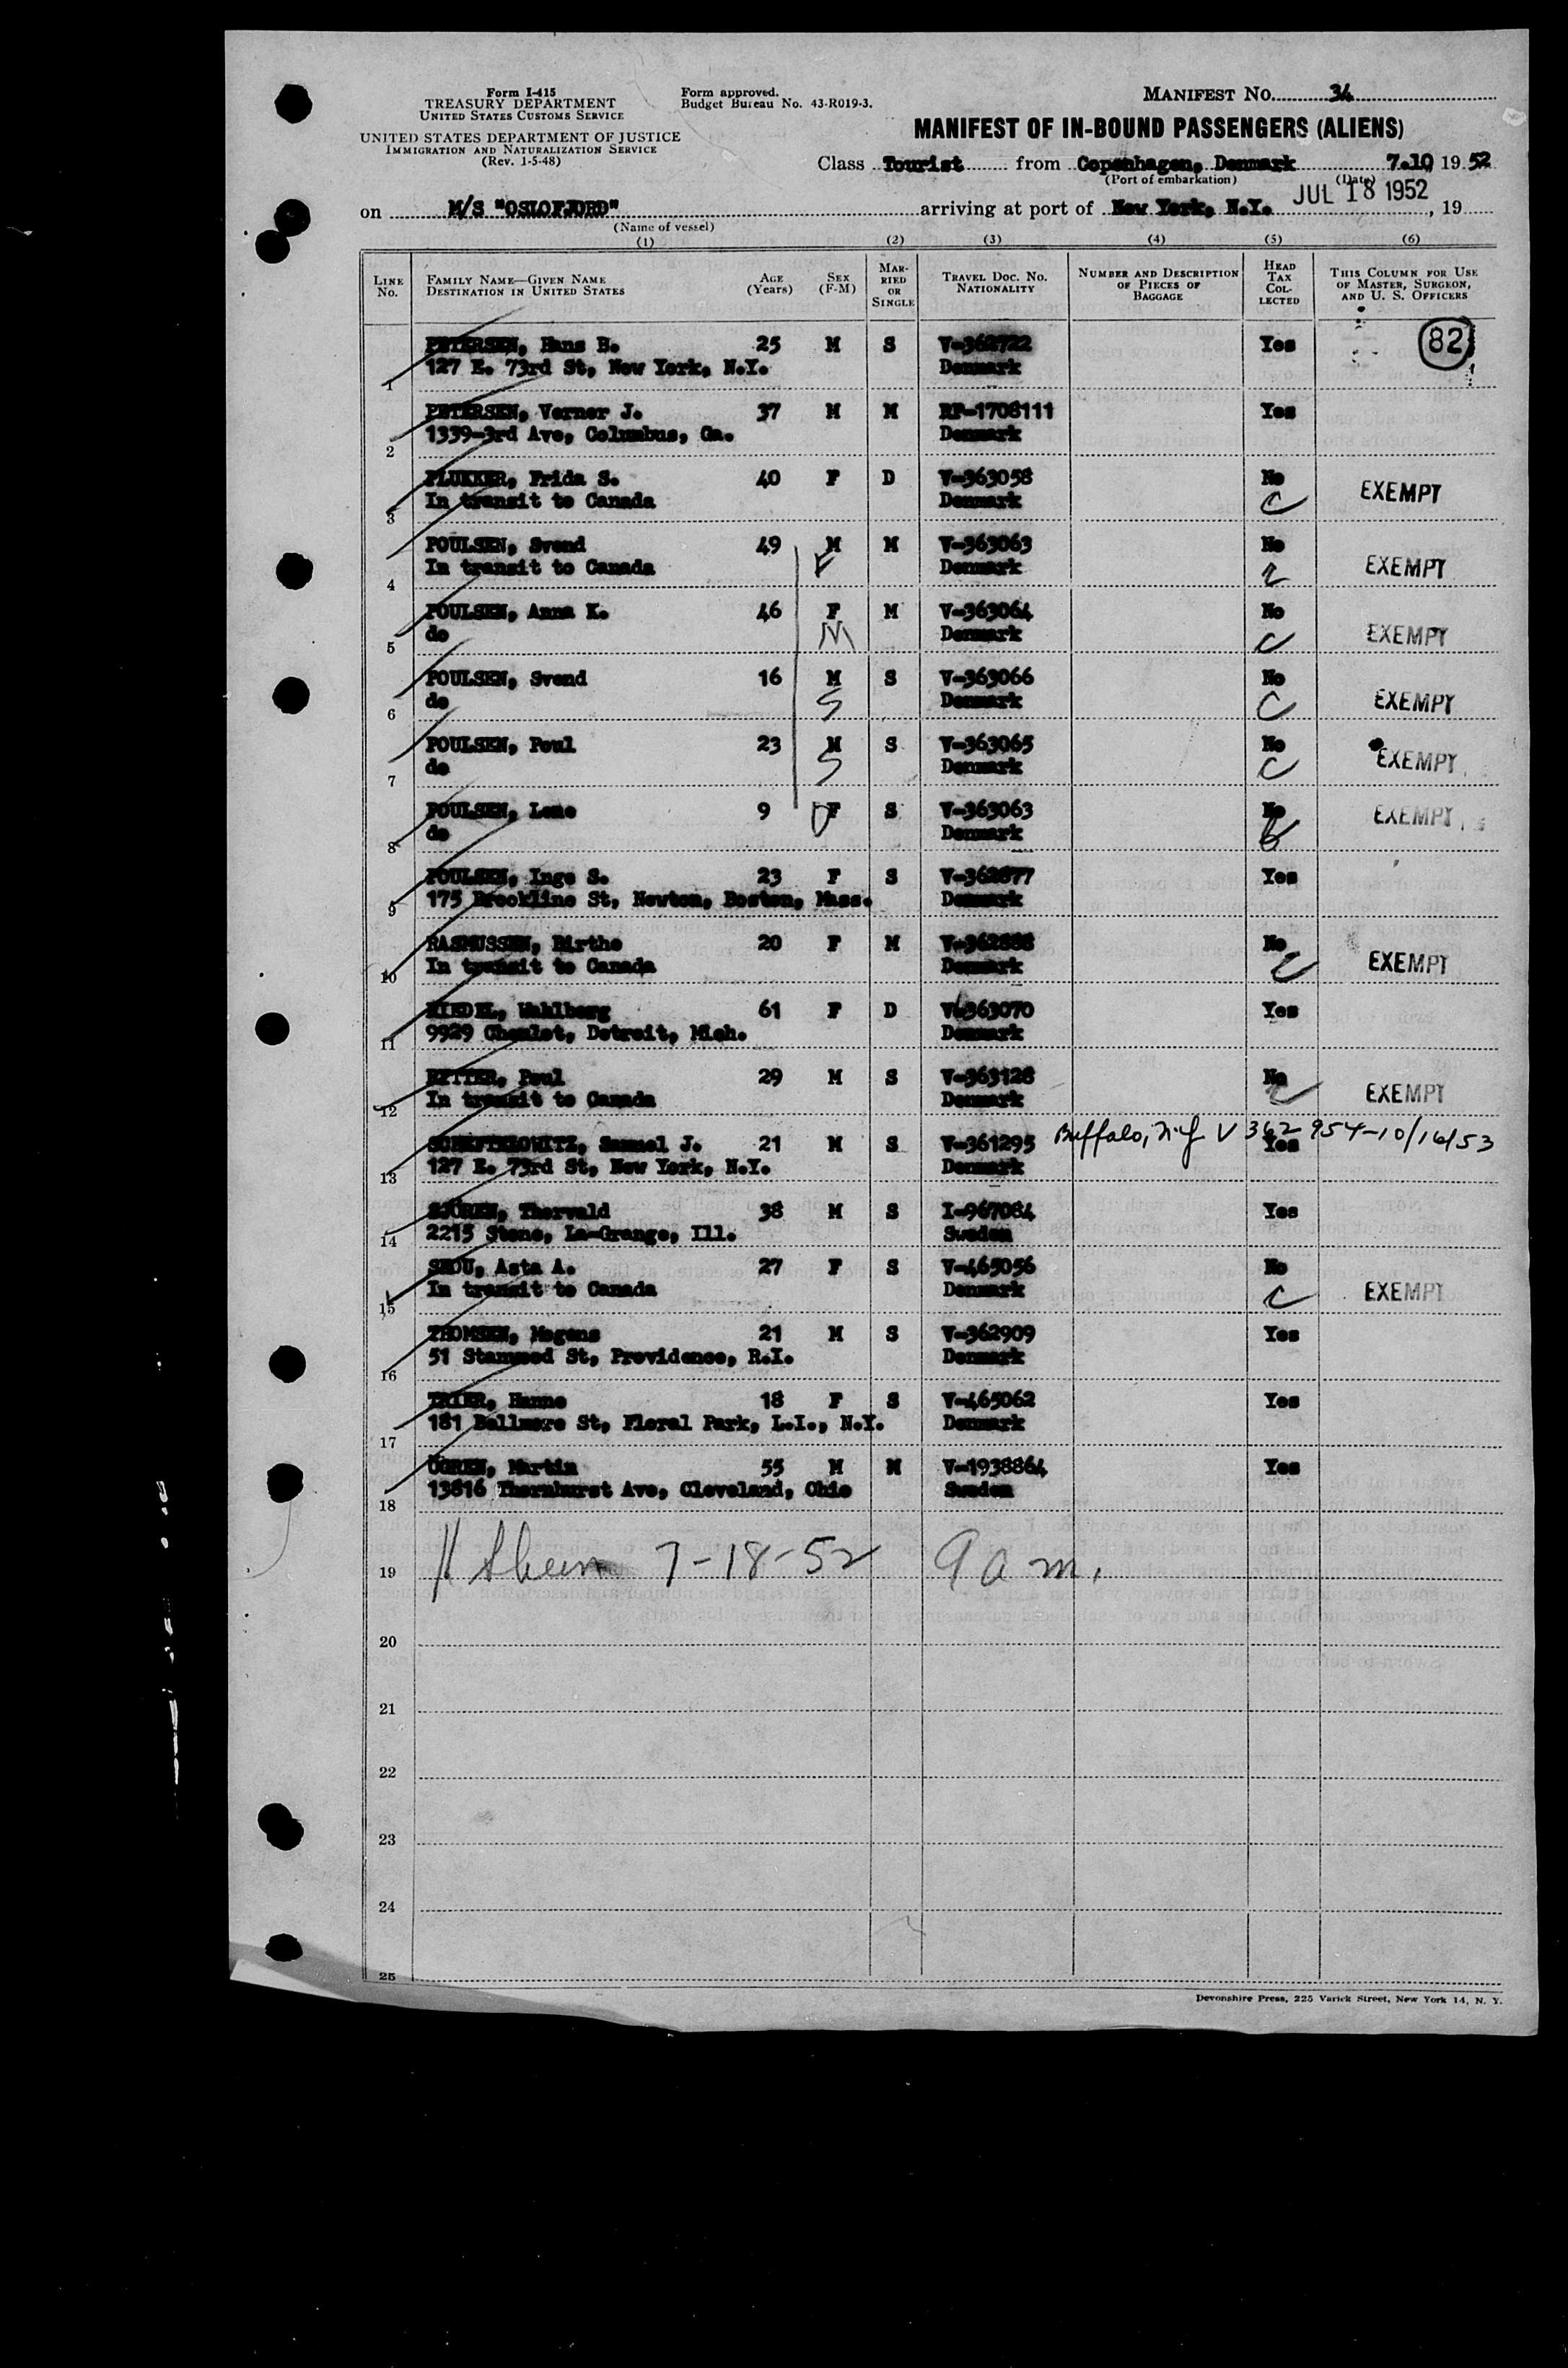 Form I-415
TREASURY DEPARTMENT
UNITED STATES CUSTOMS SERVICE
UNITED STATES DEPARTMENT OF JUSTICE
IMMIGRATION AND NATURALIZATION SERVICE
(Rev. 1-5-48)
Form approved.
Budget Bureau No. 43-R019-3.
MANIFEST NO. 34
MANIFEST OF IN-BOUND PASSENGERS (ALIENS)
Class Tourist from Copenhagen, Denmark 7.10 19 52
(Port of embarkation) (Date)
on M/S "OSLOFJORD" arriving at port of New York, N.Y. JUL 18 1952, 19
(Name of vessel)
(1) (2) (3) (4) (5) (6)
LINE NO. FAMILY NAME—GIVEN NAME DESTINATION IN UNITED STATES AGE (Years) SEX (F-M) MARRIED OR SINGLE TRAVEL DOC. NO. NATIONALITY NUMBER AND DESCRIPTION OF PIECES OF BAGGAGE HEAD TAX COLLECTED THIS COLUMN FOR USE OF MASTER, SURGEON, AND U. S. OFFICERS
PETERSEN, Hans B. 25 M S V-362722 Yes 82
1 127 E. 73rd St, New York, N.Y. Denmark
PETERSEN, Verner J. 37 M M RP-1708111 Yes
2 1339-3rd Ave, Columbus, Ga. Denmark
PLUKKER, Frida S. 40 F D V-363058 No
3 In transit to Canada Denmark C EXEMPT
POULSEN, Svend 49 M M V-363063 No
4 In transit to Canada F Denmark EXEMPT
POULSEN, Anna K. 46 F M V-363064 No
5 do M Denmark C EXEMPT
POULSEN, Svend 16 M S V-363066 No
6 do S Denmark C EXEMPT
POULSEN, Poul 23 M S V-363065 No
7 do S Denmark C EXEMPT
POULSEN, Lene 9 F S V-363063 No EXEMPT
8 do Denmark
POULSEN, Inge S. 23 F S V-362877 Yes
9 175 Brookline St, Newton, Boston, Mass. Denmark
RASMUSSEN, Birthe 20 F M V-362888 No
10 In transit to Canada Denmark C EXEMPT
RIEDEL, Wahlborg 61 F D V-363070 Yes
11 9929 Detroit, Mich. Denmark
Poul 29 M S V-363128 No
12 In transit to Canada Denmark C EXEMPT
Samuel J. 21 M S V-361295 Yes Buffalo, N.Y. V 362 954-10/16/53
13 127 E. 73rd St, New York, N.Y. Denmark
Thorvald 38 M S I-967084 Yes
14 2215 Stone, La-Grange, Ill. Sweden
SKOU, Asta A. 27 F S V-465056 No
15 In transit to Canada Denmark C EXEMPT
THOMSEN, Mogens 21 M S V-362909 Yes
16 51 St, Providence, R.I. Denmark
TRIER, Hanne 18 F S V-465062 Yes
17 181 Bellmore St, Floral Park, L.I., N.Y. Denmark
OGREN, Martin 55 M M V-1938864 Yes
18 13816 Thornhurst Ave, Cleveland, Ohio Sweden
19 7-18-52 9 a m.
20
21
22
23
24
25
Devonshire Press, 225 Varick Street, New York 14, N. Y.